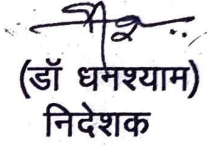 (डॉ धनश्याम)
निदेशक